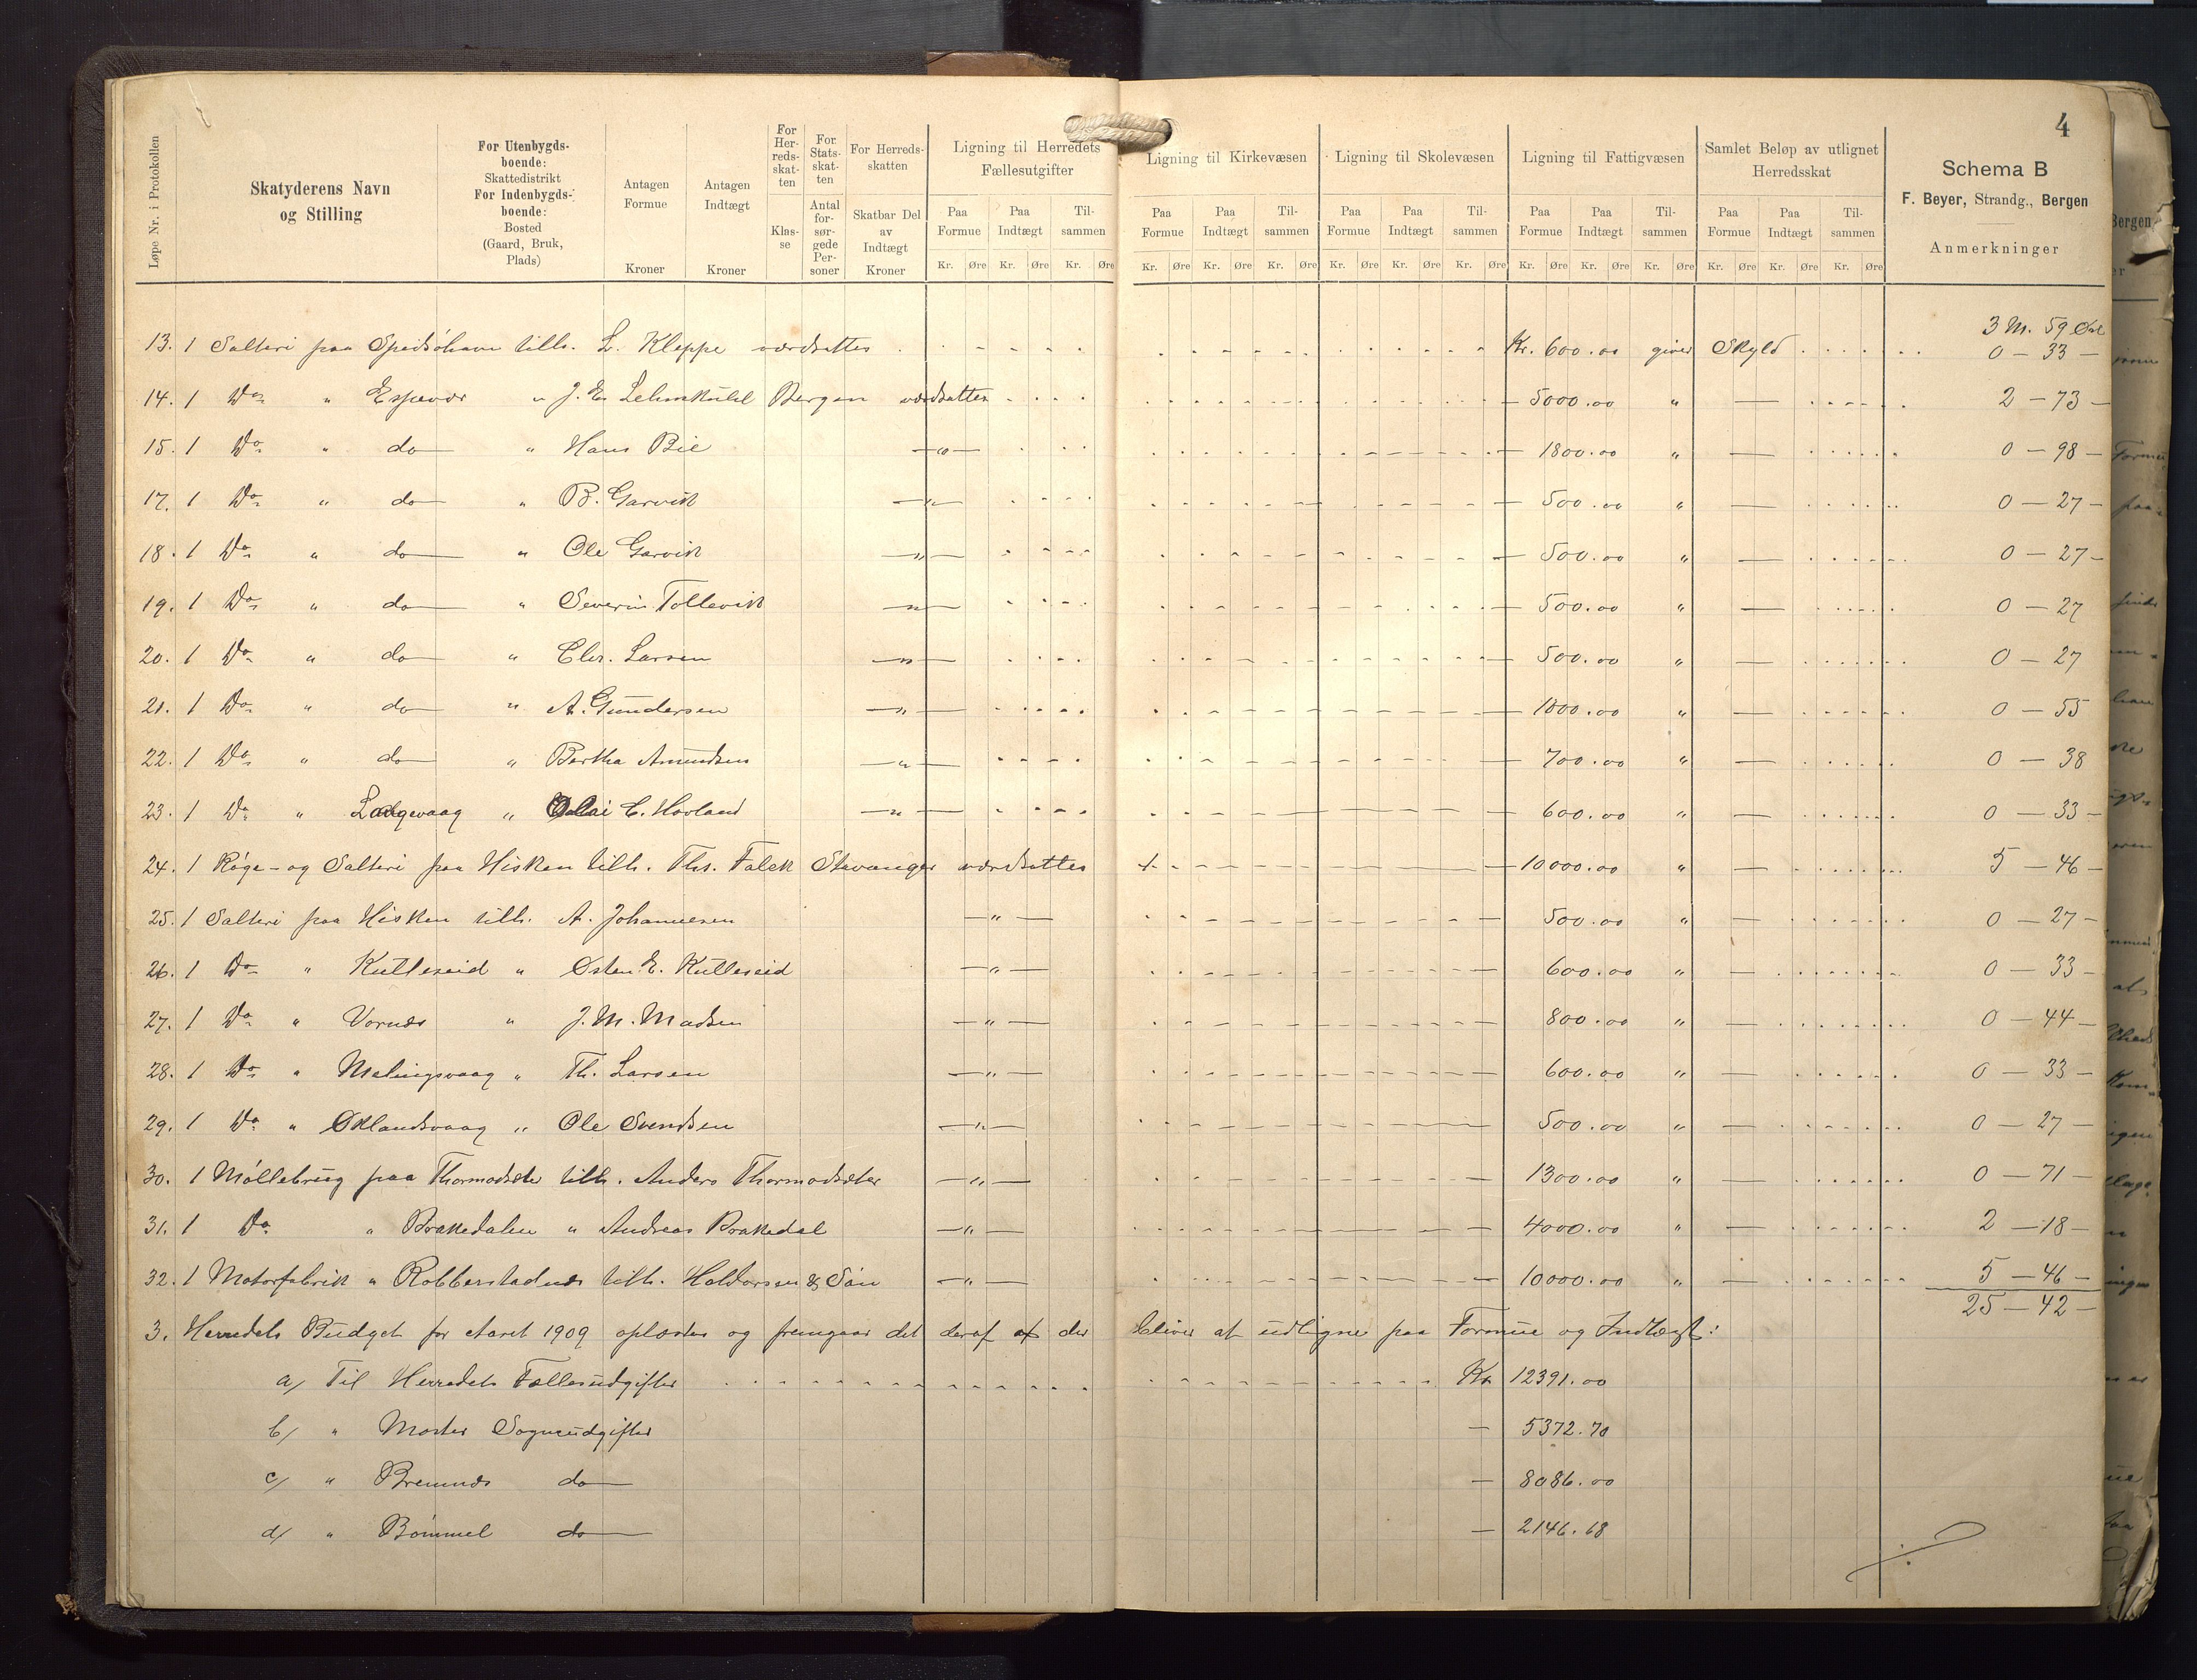 4
Løpe Nr. i Protokollen
Skatyderens Navn og Stilling
For Utenbygdsboende: Skattedistrikt For Indenbygdsboende: Bosted (Gaard, Bruk, Plads)
Antagen Formue Kroner
Antagen Indtægt Kroner
For Herredsskatten Klasse
For Statsskatten Antal forsørgede Personer
For Herredsskatten Skatbar Del av Indtægt Kroner
Ligning til Herredets Fællesutgifter
Paa Formue Paa Indtægt Tilsammen
Kr. Øre Kr. Øre Kr. Øre
Ligning til Kirkevæsen
Paa Formue Paa Indtægt Tilsammen
Kr. Øre Kr. Øre Kr. Øre
Ligning til Skolevæsen
Paa Formue Paa Indtægt Tilsammen
Kr. Øre Kr. Øre Kr. Øre
Ligning til Fattigvæsen
Paa Formue Paa Indtægt Tilsammen
Kr. Øre Kr. Øre Kr. Øre
Samlet Beløp av utlignet Herredsskat
Paa Formue Paa Indtægt Tilsammen
Kr. Øre Kr. Øre Kr. Øre
Schema B
F. Beyer, Strandg., Bergen
Anmerkninger
3 M. 59 Øre
13. 1 Salteri paa Speidsøhavn tilh. L. Kleppe værdsattes Kr. 600.00 giver Skyld 0 – 33 –
14. 1 Do " Espevær " J. E. Lehmkuhl Bergen værdsattes – 5000.00 " — 2 – 73 –
15. 1 Do " do " Hans Bie — " — – 1800.00 " — 0 – 98 –
17. 1 Do " do " B. Garvik — " — – 500.00 " — 0 – 27 –
18. 1 Do " do " Ole Garvik — " — – 500.00 " — 0 – 27 –
19. 1 Do " do " Severin Tollevik — " — – 500.00 " — 0 – 27
20. 1 Do " do " Chr. Larsen — " — – 500.00 " — 0 – 27
21. 1 Do " do " A. Gundersen — " — – 1000.00 " — 0 – 55
22. 1 Do " do " Bertha Amundsen — " — – 700.00 " — 0 – 38
23. 1 Do " Langevaag " Olai C. Hovland — " — – 600.00 " — 0 – 33 –
24. 1 Røge- og Salteri paa Hisken tilh. Ths. Falck Stavanger værdsattes – 10000.00 " — 5 – 46 –
25. 1 Salteri paa Hisken tilh. A. Johannesen — " — – 500.00 " — 0 – 27 –
26. 1 Do " Kulleseid " Østen E. Kulleseid — " — – 600.00 " — 0 – 33 –
27. 1 Do " Vornæs " J. M. Madsen — " — – 800.00 " — 0 – 44 –
28. 1 Do " Melingsvaag " Th. Larsen — " — – 600.00 " — 0 – 33 –
29. 1 Do " Øklandsvaag " Ole Svendsen — " — – 500.00 " — 0 – 27 –
30. 1 Møllebrug paa Thormodsæter tilh. Anders Thormodsæter — " — – 1300.00 " — 0 – 71 –
31. 1 Do " Brakedalen " Andreas Brakedal — " — – 4000.00 " — 2 – 18 –
32. 1 Motorfabrik " Robberstadnæs tilh. Haldorsen & Søn — " — – 10000.00 " — 5 – 46 –
25 – 42 –
3. Herredets Budget for Aaret 1909 oplæstes og fremgaar det deraf at der bliver at udligne paa Formue og Indtægt:
a/ Til Herredets Fællesudgifter Kr 12391.00
b/ " Moster Sogneudgifter – 5372.70
c/ " Bremnæs do – 8086.00
d/ " Bømmel do – 2146.68